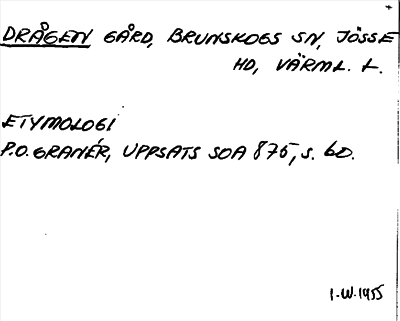 DRÅGEN GÅRD, BRUNSKOGS SN, JÖSSE
HD, VÄRML. L.
ETYMOLOGI
P.O. GRANÉR, UPPSATS SOA 875, S. 60.
I.W. 1955